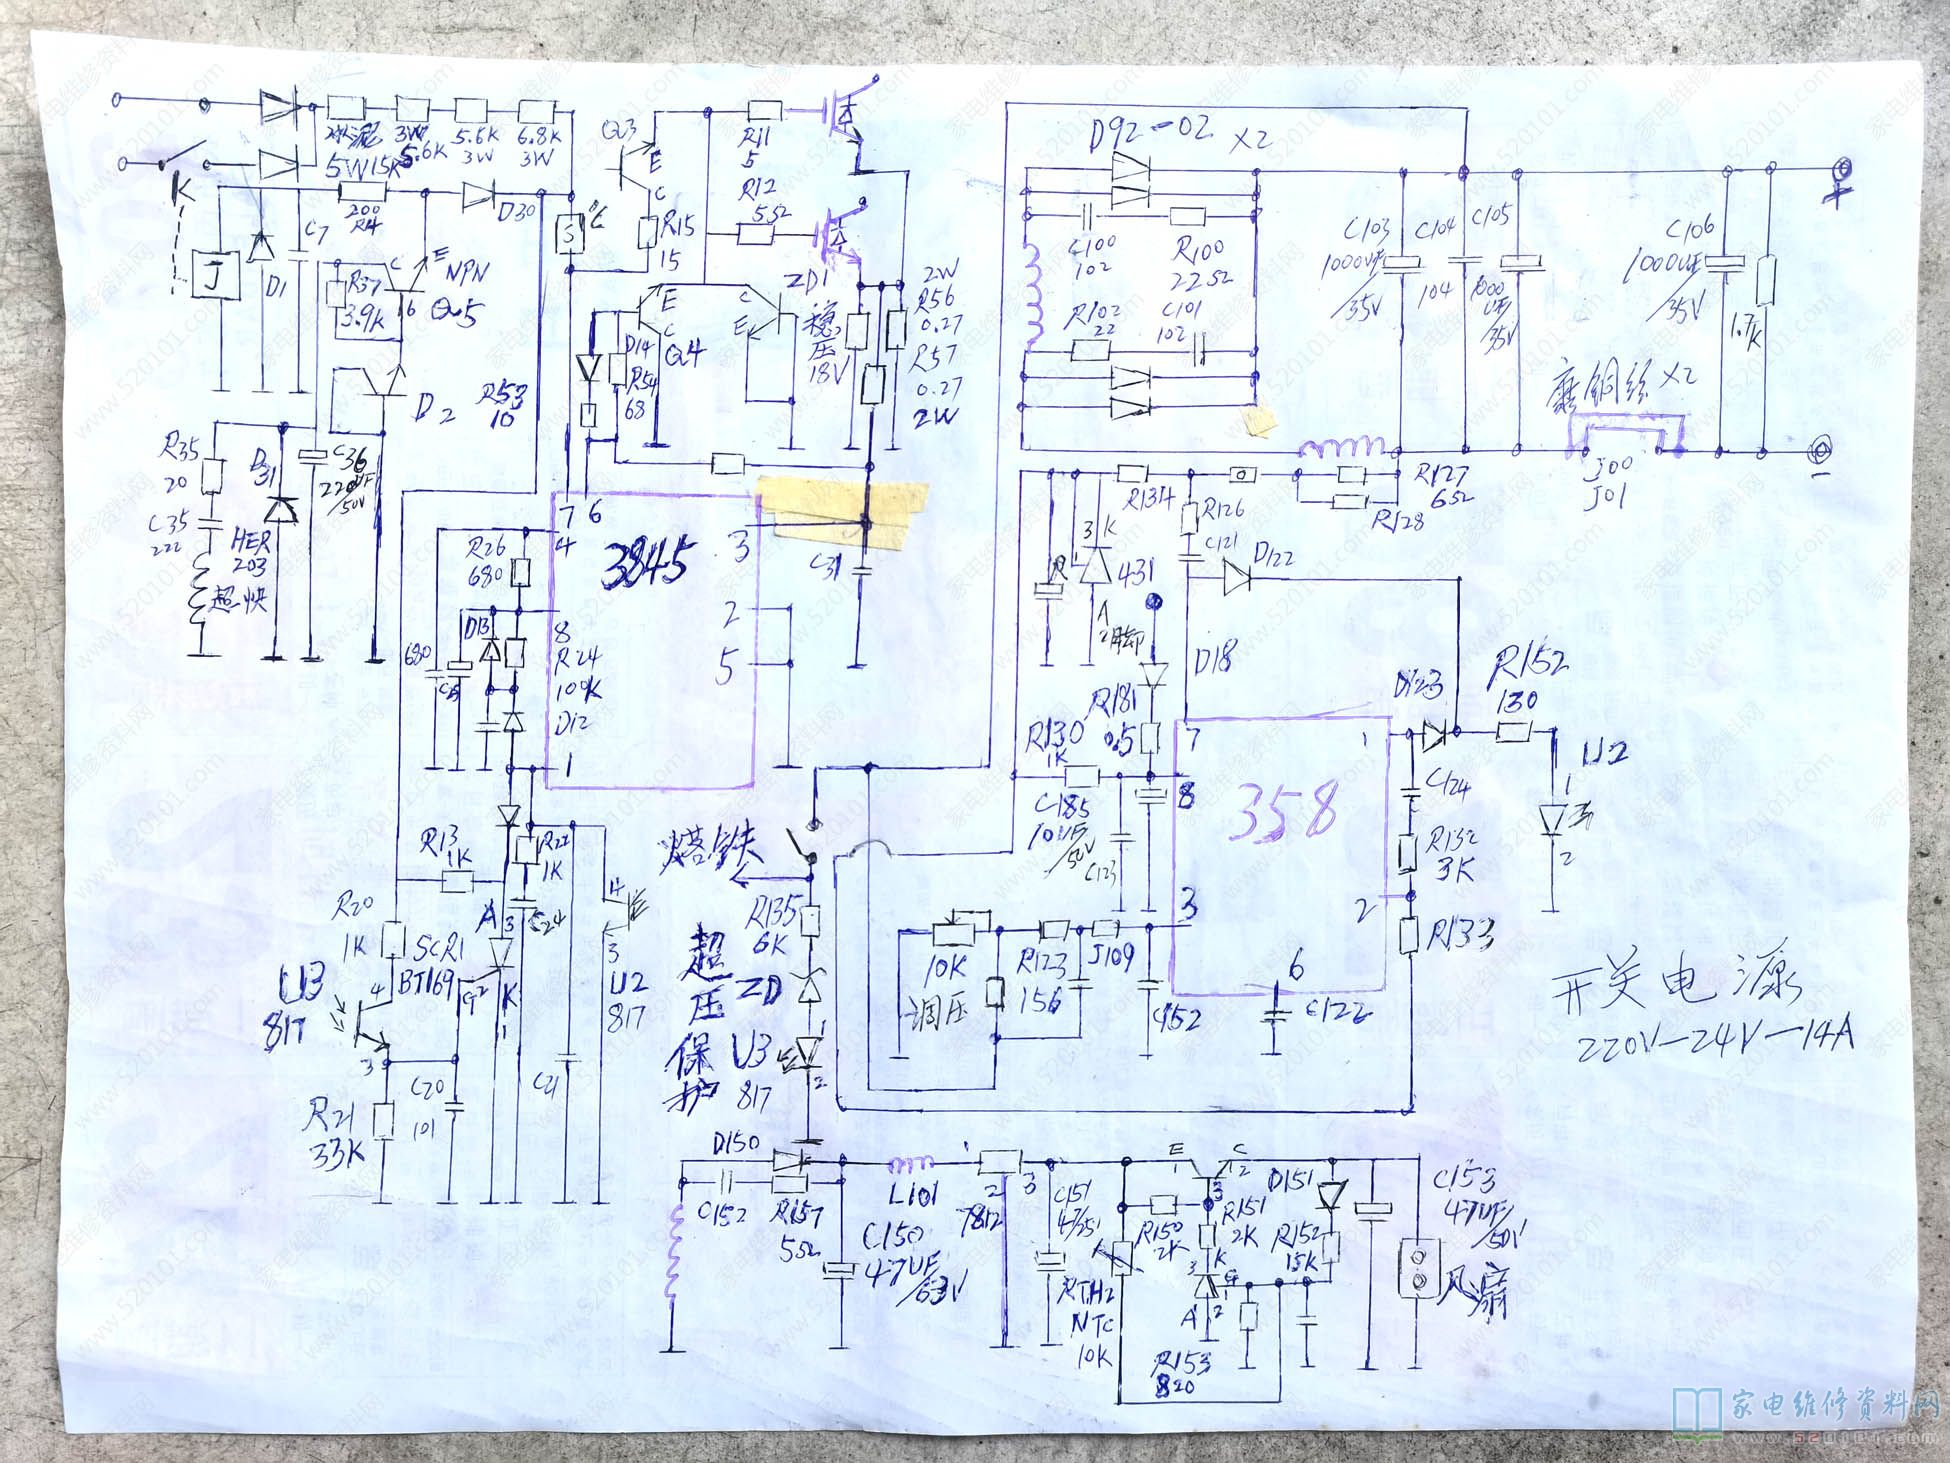 K
J
D1
C7
5W15K
3W
5.6K
5.6K
3W
6.8K
3W
200
R4
D30
R37
3.9K
C
E
NPN
Q5
D2
R53
10
R35
20
C35
222
D31
HER
203
超快
C36
220UF
/50V
Q3
E
C
R15
15
R11
5
R12
5Ω
ZD1
稳
压
18V
E
C
Q4
C
E
D14
R54
68
2W
R56
0.27
R57
0.27
2W
7
6
4
3845
3
2
5
8
1
R26
680
D13
R24
100K
D12
680
C31
R13
1K
R22
1K
C24
R20
1K
SCR1
BT169
A
3
G
2
K
1
U3
817
4
3
R21
33K
C20
101
C21
4
3
U2
817
D92-02 X2
C100
102
R100
22Ω
R102
22
C101
102
C103
1000UF
/35V
C104
104
C105
1000
UF/
35V
C106
1000UF
/35V
1.7K
+
-
磨铜丝 X2
J00
J01
R134
R126
C121
R127
6Ω
R128
D122
3
K
431
A
2脚
D18
R181
0.5
R130
1K
C185
10UF
/50V
C123
7
8
3
358
1
2
6
C122
D123
R152
130
U2
1
2
C124
R132
3K
R133
烙铁
R135
6K
ZD
超
压
保
护
U3
817
1
2
10K
调压
R123
156
J109
C152
开关电源
220V-24V-14A
D150
C152
R157
5Ω
L101
C150
47UF
/63V
1
2
3
7812
C151
47/25V
RTH2
NTC
10K
E
1
C
2
3
R150
2K
R151
2K
K
3
G
1
A
2
R153
820
D151
R152
15K
C153
47UF
/50V
风扇
家电维修资料网
www.520101.com